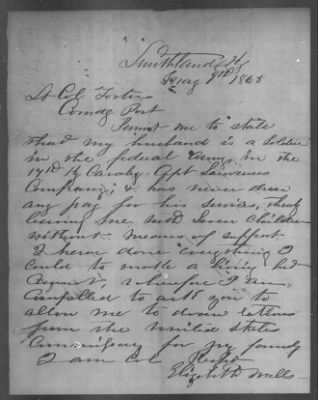 Smithland Ky
1865
Lt Col Foster
Comdg Post
Permit me to state
that my husband is a Soldier
in the federal army in the
17th Ky Cavalry Capt
Company & has never drew
any pay for his services, thereby
leaving me with Seven Children
without means of support
I have done everything I
could to make a living but
cannot, therefore I am
Compelled to ask you to
allow me to draw rations
from the United States
Commissary for my family
I am Col
Elizabeth Walls